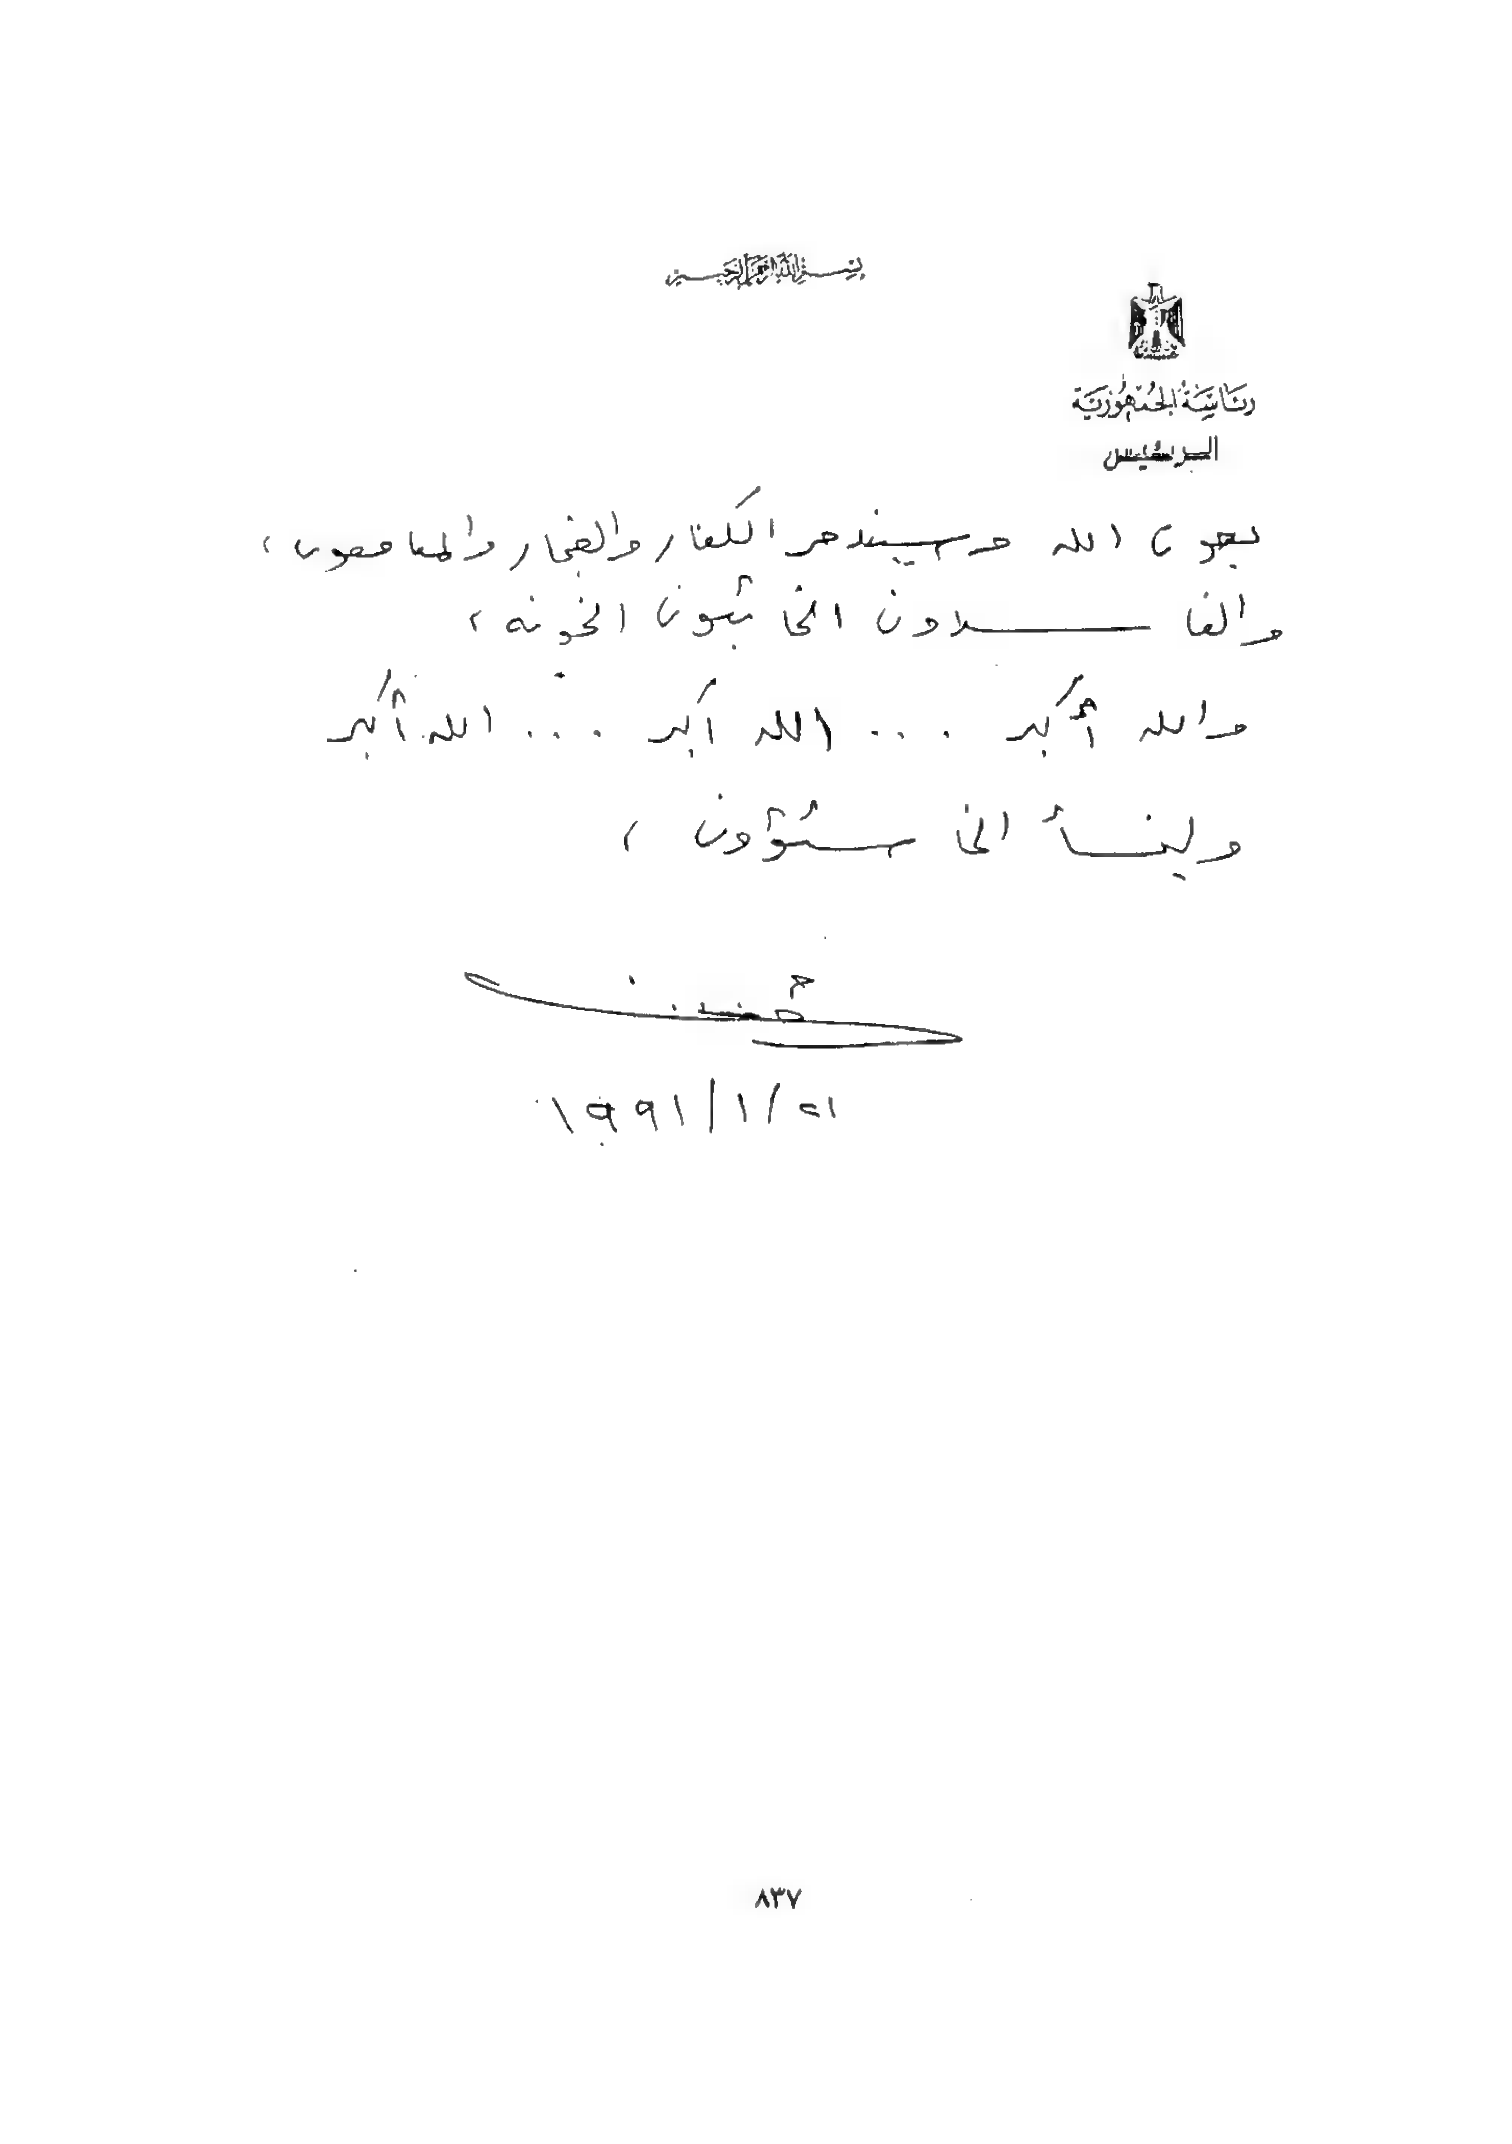 بسم الله الرحمن الرحيم
رئاسة الجمهورية
الرئيس
بعون الله وسيندحر الكفار والفجار والمنافقون،
والفاسدون الخائبون الخونه،
والله أكبر ... الله أكبر ... الله أكبر
وليخسأ الخاسئؤون،
١٩٩١/١/
٨٣٧